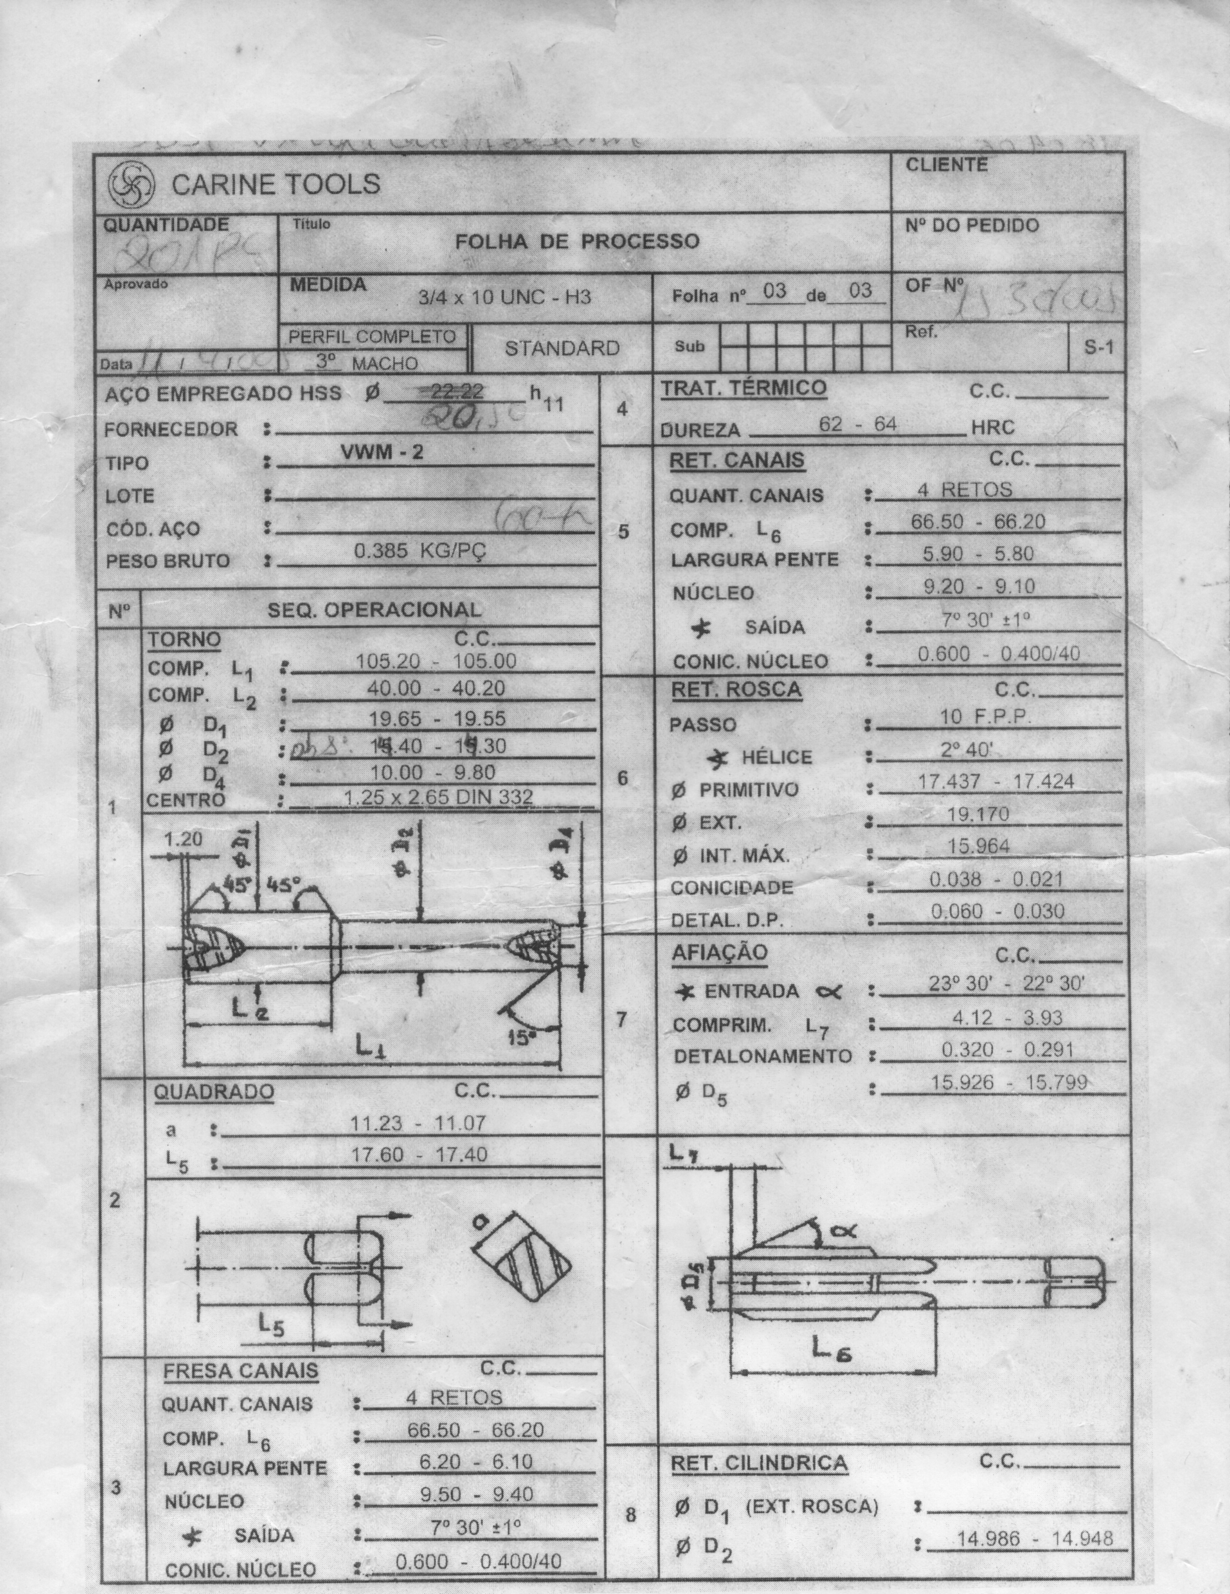 CARINE TOOLS
CLIENTE
QUANTIDADE
Título
FOLHA DE PROCESSO
Nº DO PEDIDO
Aprovado
MEDIDA
3/4 x 10 UNC - H3
Folha nº 03 de 03
OF Nº
PERFIL COMPLETO
STANDARD
Sub
Ref.
S-1
Data
3º MACHO
AÇO EMPREGADO HSS Ø 22.22 h11
FORNECEDOR :
TIPO : VWM - 2
LOTE :
CÓD. AÇO :
PESO BRUTO : 0.385 KG/PÇ
Nº SEQ. OPERACIONAL
1
TORNO C.C.
COMP. L1 : 105.20 - 105.00
COMP. L2 : 40.00 - 40.20
Ø D1 : 19.65 - 19.55
Ø D2 :
Ø D4 : 10.00 - 9.80
CENTRO : 1.25 x 2.65 DIN 332
1.20
Ø D1
Ø D2
Ø D4
45° 45°
L2
15°
L1
2
QUADRADO C.C.
a : 11.23 - 11.07
L5 : 17.60 - 17.40
a
L5
3
FRESA CANAIS C.C.
QUANT. CANAIS : 4 RETOS
COMP. L6 : 66.50 - 66.20
LARGURA PENTE : 6.20 - 6.10
NÚCLEO : 9.50 - 9.40
SAÍDA : 7º 30' ±1º
CONIC. NÚCLEO : 0.600 - 0.400/40
4
TRAT. TÉRMICO C.C.
DUREZA 62 - 64 HRC
5
RET. CANAIS C.C.
QUANT. CANAIS : 4 RETOS
COMP. L6 : 66.50 - 66.20
LARGURA PENTE : 5.90 - 5.80
NÚCLEO : 9.20 - 9.10
SAÍDA : 7º 30' ±1º
CONIC. NÚCLEO : 0.600 - 0.400/40
6
RET. ROSCA C.C.
PASSO : 10 F.P.P.
HÉLICE : 2º 40'
Ø PRIMITIVO : 17.437 - 17.424
Ø EXT. : 19.170
Ø INT. MÁX. : 15.964
CONICIDADE : 0.038 - 0.021
DETAL. D.P. : 0.060 - 0.030
7
AFIAÇÃO C.C.
ENTRADA α : 23º 30' - 22º 30'
COMPRIM. L7 : 4.12 - 3.93
DETALONAMENTO : 0.320 - 0.291
Ø D5 : 15.926 - 15.799
L7
α
Ø D5
L6
8
RET. CILINDRICA C.C.
Ø D1 (EXT. ROSCA) :
Ø D2 : 14.986 - 14.948